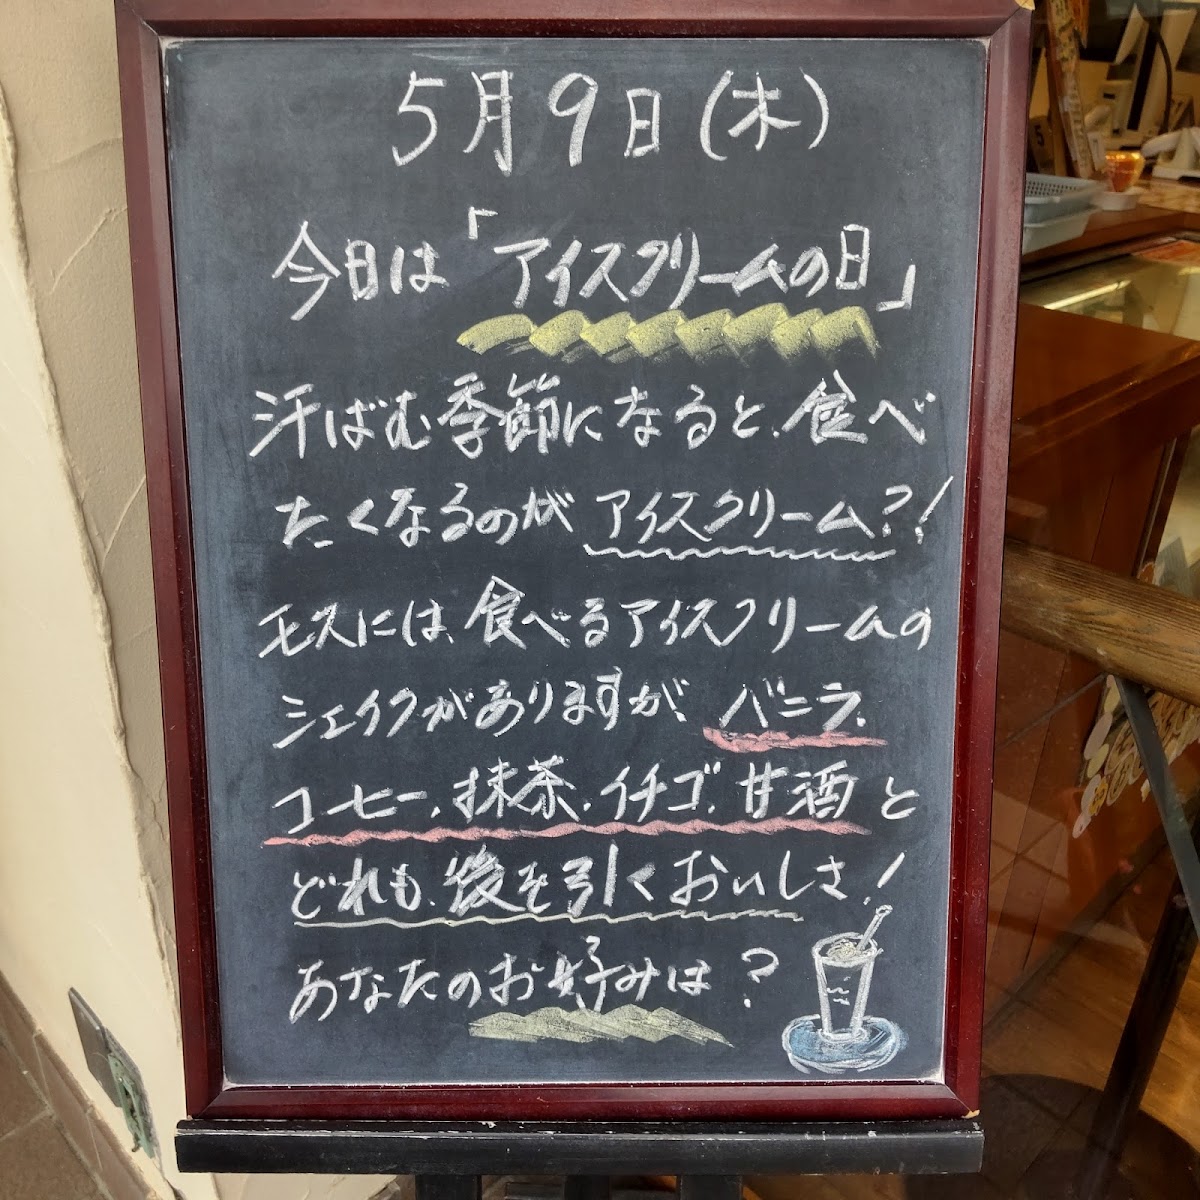 5月9日(木)
今日は「アイスクリームの日」
汗ばむ季節になると、食べ
たくなるのがアイスクリーム?!
モスには、食べるアイスクリームの
シェイクがありますが、バニラ、
コーヒー、抹茶、イチゴ、甘酒と
どれも、後を引くおいしさ!
あなたのお好みは?